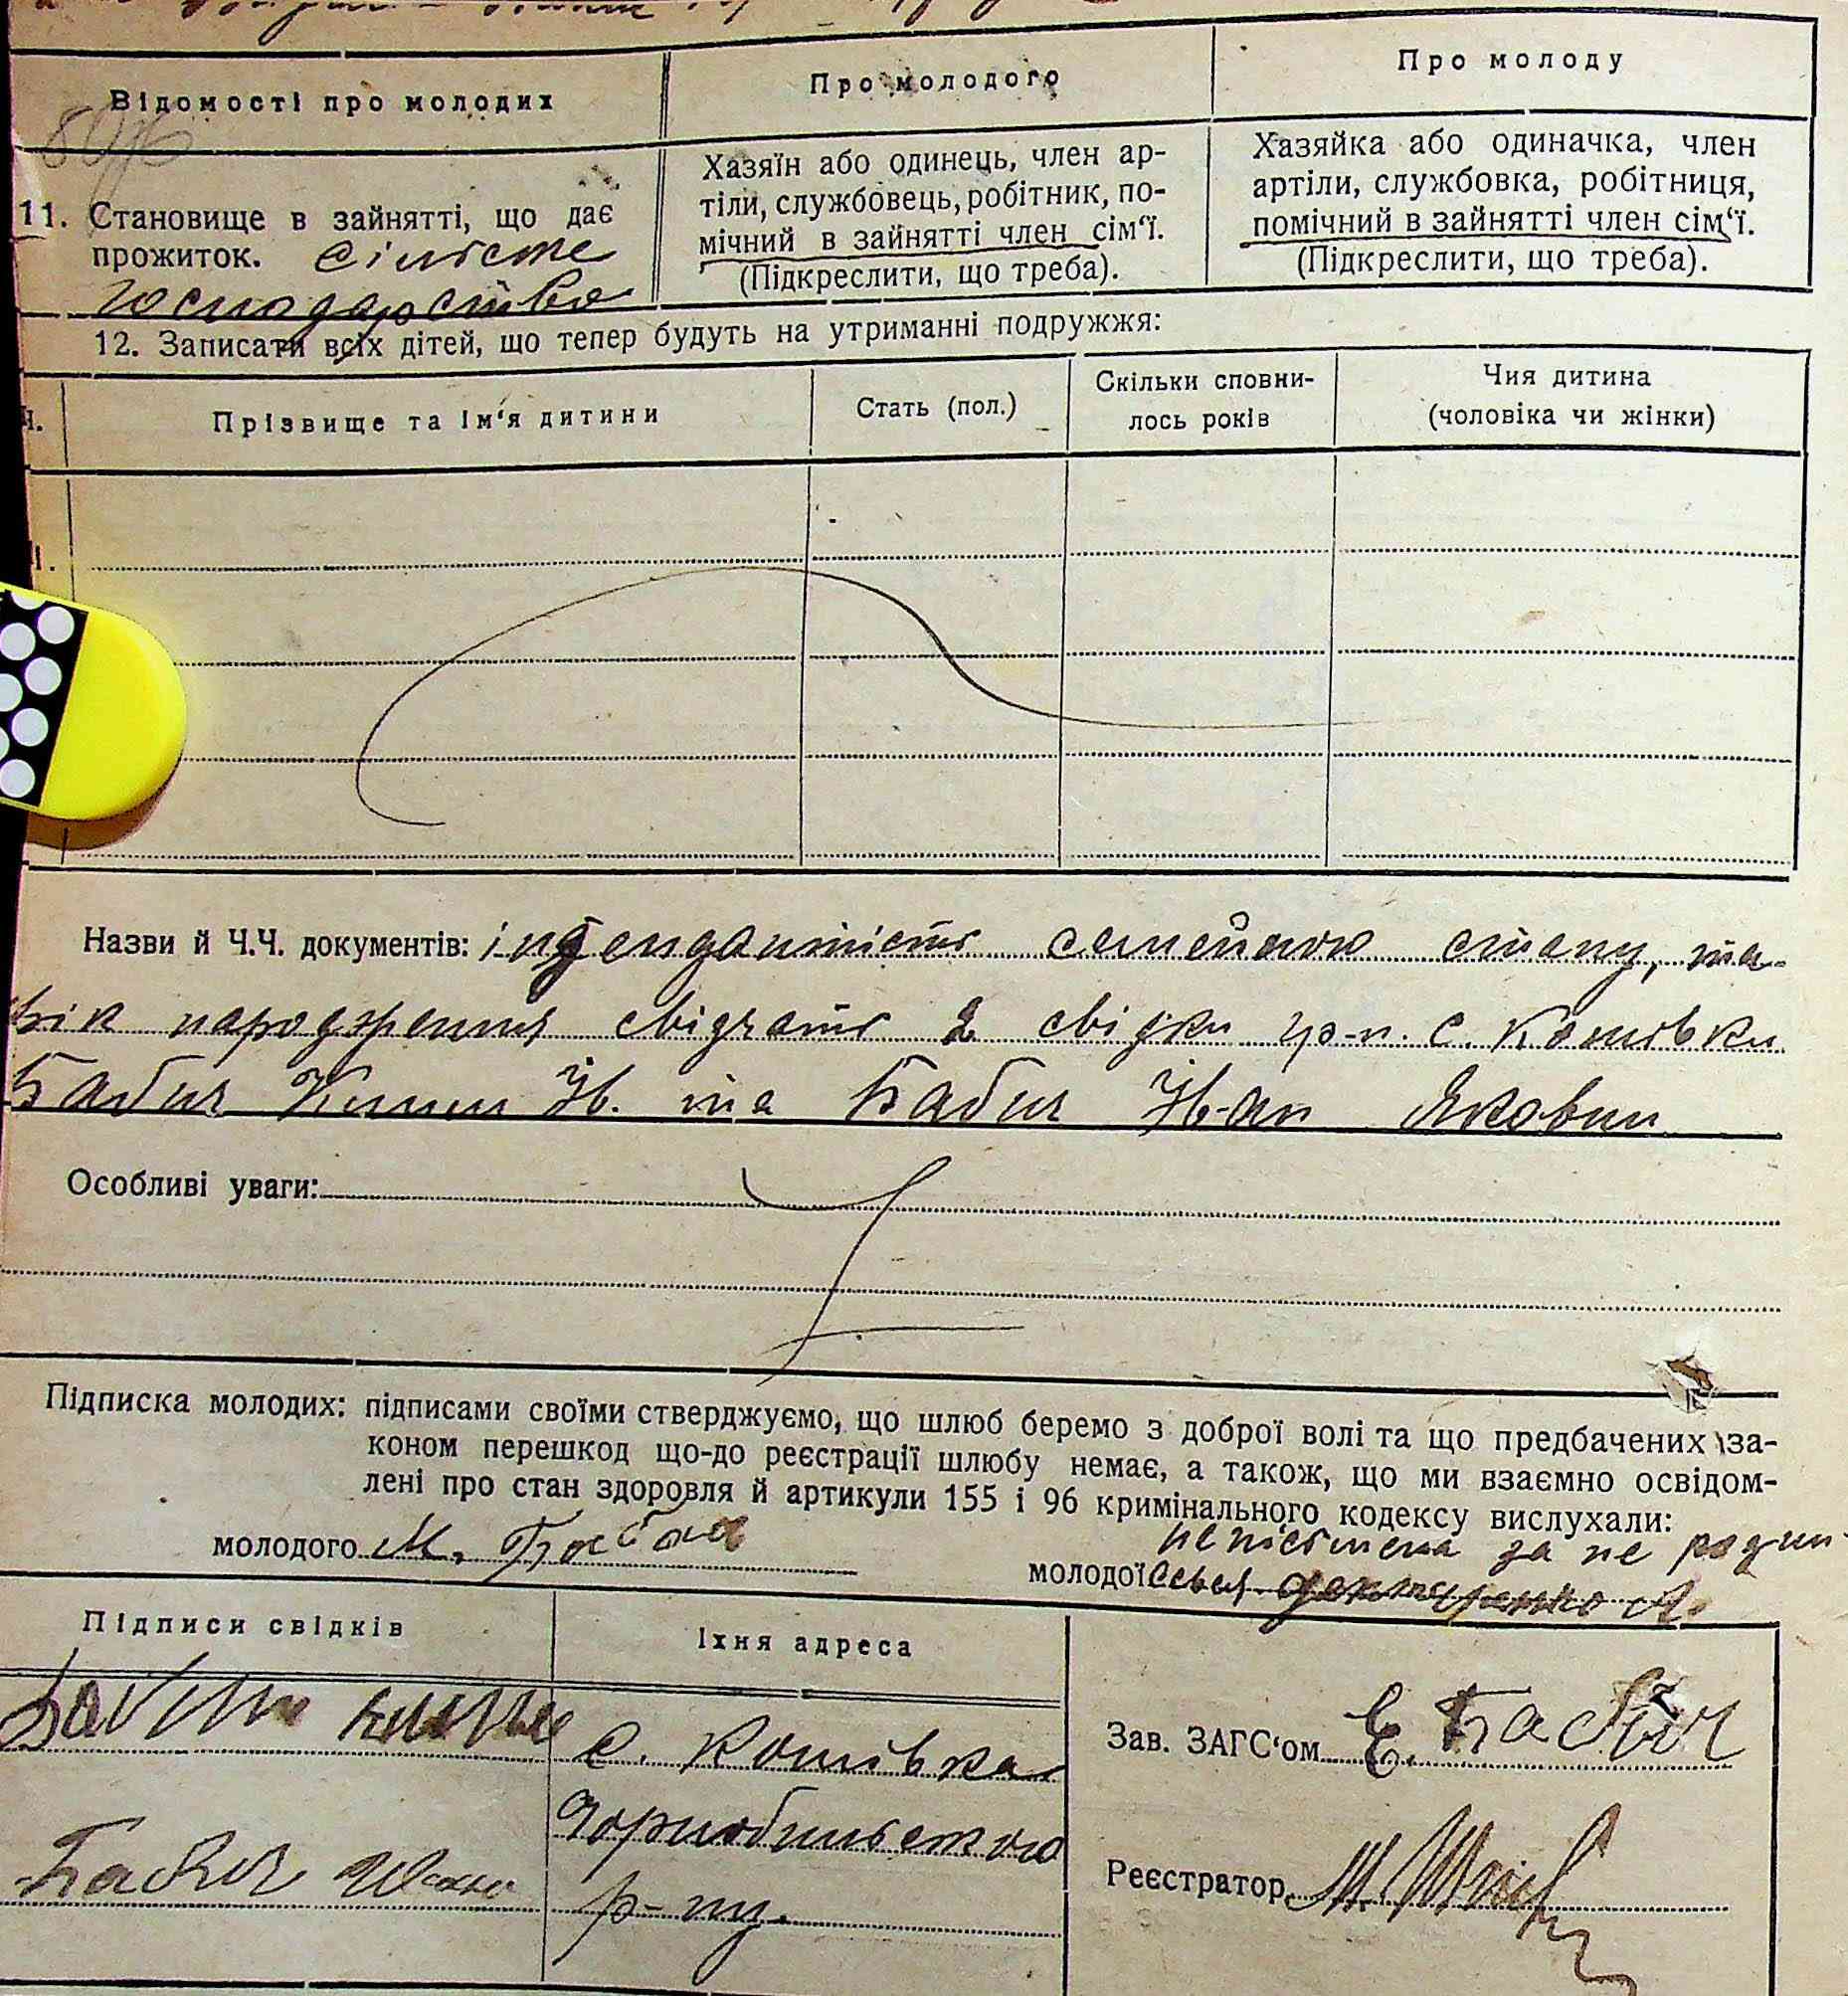 Відомості про молодих
Про молодого
Про молоду
11. Становище в зайнятті, що дає
прожиток. сільське
господарство
Хазяїн або одинець, член ар-
тіли, службовець, робітник, по-
мічний в зайнятті член сім‘ї.
(Підкреслити, що треба).
Хазяйка або одиначка, член
артіли, службовка, робітниця,
помічний в зайнятті член сім‘ї.
(Підкреслити, що треба).
12. Записати всіх дітей, що тепер будуть на утриманні подружжя:
Прізвище та ім‘я дитини
Стать (пол.)
Скільки сповни-
лось років
Чия дитина
(чоловіка чи жінки)
Назви й Ч.Ч. документів: семейного стану, та
вік народження свідчать 2 свідки гр-н. с. Копівки
Бабич Ів. та Бабич Іван Якович
Особливі уваги:
Підписка молодих: підписами своїми стверджуємо, що шлюб беремо з доброї волі та що предбачених за-
коном перешкод що-до реєстрації шлюбу немає, а також, що ми взаємно освідом-
лені про стан здоровля й артикули 155 і 96 кримінального кодексу вислухали:
молодого М.
неписьмена за не
молодої А.
Підписи свідків
Їхня адреса
с. Копівка
Чорнобильського
р-ну.
Бабич
Зав. ЗАГС‘ом Є. Бабич
Реєстратор М.